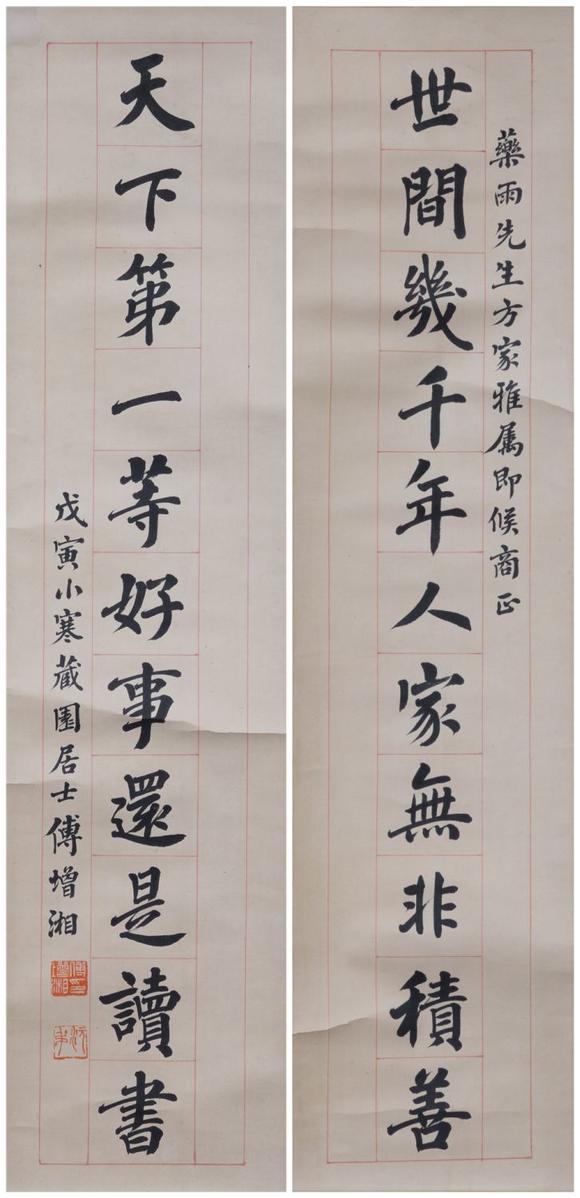 藥雨先生方家雅属即候商正
世間幾千年人家無非積善
天下第一等好事還是讀書
戊寅小寒藏園居士傅增湘
傅增湘印
沅未